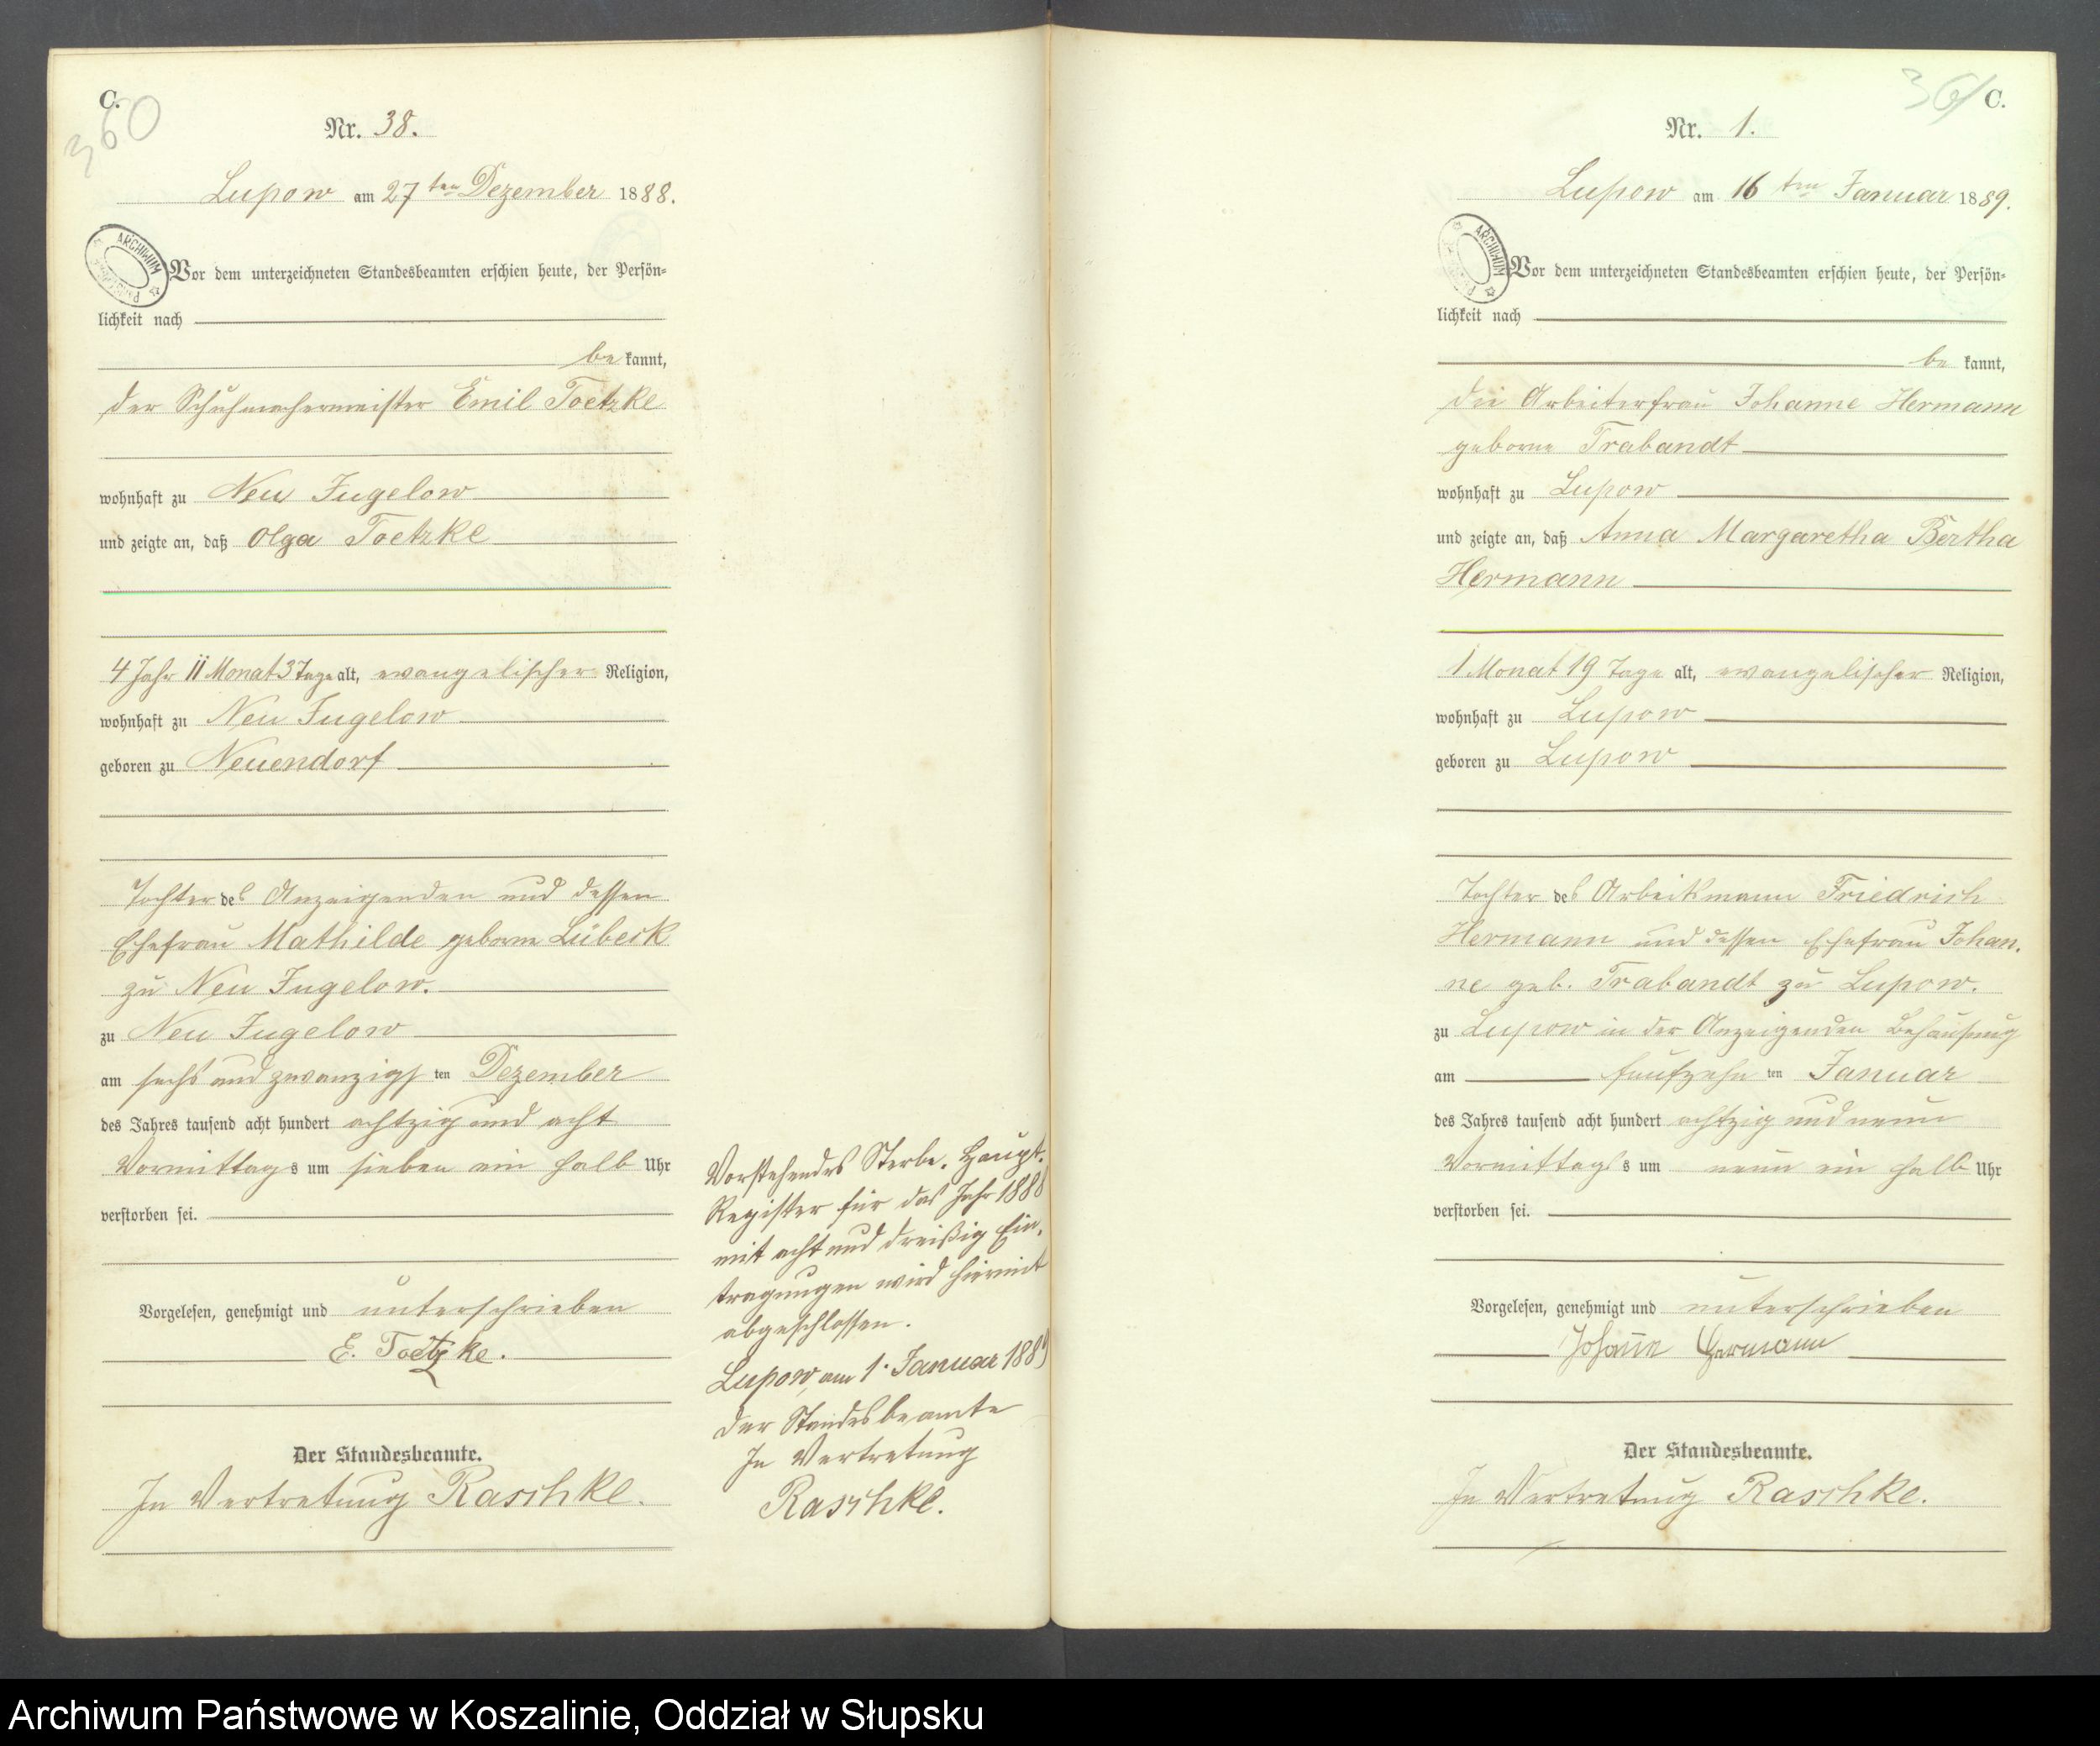 C.
360
Nr. 38.
Lupow am 27ten Dezember 1888.
ARCHIWUM
Vor dem unterzeichneten Standesbeamten erschien heute, der Persön-
lichkeit nach
be kannt,
der Schuhmachermeister Emil Toetzke
wohnhaft zu Neu Jugelow
und zeigte an, daß Olga Toetzke
4 Jahr 11 Monat 3 Tage alt, evangelischer Religion,
wohnhaft zu Neu Jugelow
geboren zu Neuendorf
Tochter des Anzeigenden und dessen
Ehefrau Mathilde geborne Lübeck
zu Neu Jugelow.
zu Neu Jugelow
am sechs und zwanzigs ten Dezember
des Jahres tausend acht hundert achtzig und acht
Vormittags um sieben ein halb Uhr
verstorben sei.
Vorgelesen, genehmigt und unterschrieben
E. Toetzke.
Der Standesbeamte.
In Vertretung Raschke.
Vorstehendes Sterbe-Haupt-
Register für das Jahr 1888
mit acht und dreißig Ein-
tragungen wird hiermit
abgeschlossen.
Lupow, am 1. Januar 1889
Der Standesbeamte
In Vertretung
Raschke.
361
C.
Nr. 1.
Lupow am 16ten Januar 1889.
ARCHIWUM
Vor dem unterzeichneten Standesbeamten erschien heute, der Persön-
lichkeit nach
be kannt,
die Arbeiterfrau Johanne Hermann
geborne Trabandt
wohnhaft zu Lupow
und zeigte an, daß Anna Margaretha Bertha
Hermann
1 Monat 19 Tage alt, evangelischer Religion,
wohnhaft zu Lupow
geboren zu Lupow
Tochter des Arbeitsmann Friedrich
Hermann und dessen Ehefrau Johan-
ne geb. Trabandt zu Lupow.
zu Lupow in der Anzeigenden Behausung
am fünfzehn ten Januar
des Jahres tausend acht hundert achtzig und neun
Vormittags um neun ein halb Uhr
verstorben sei.
Vorgelesen, genehmigt und unterschrieben
Johann Hermann
Der Standesbeamte.
In Vertretung Raschke.
Archiwum Państwowe w Koszalinie, Oddział w Słupsku